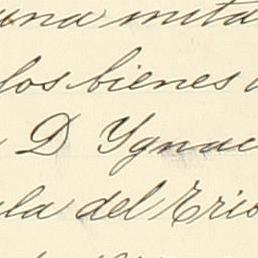 una mita
los bienes
D Ygnac
ula del Eris